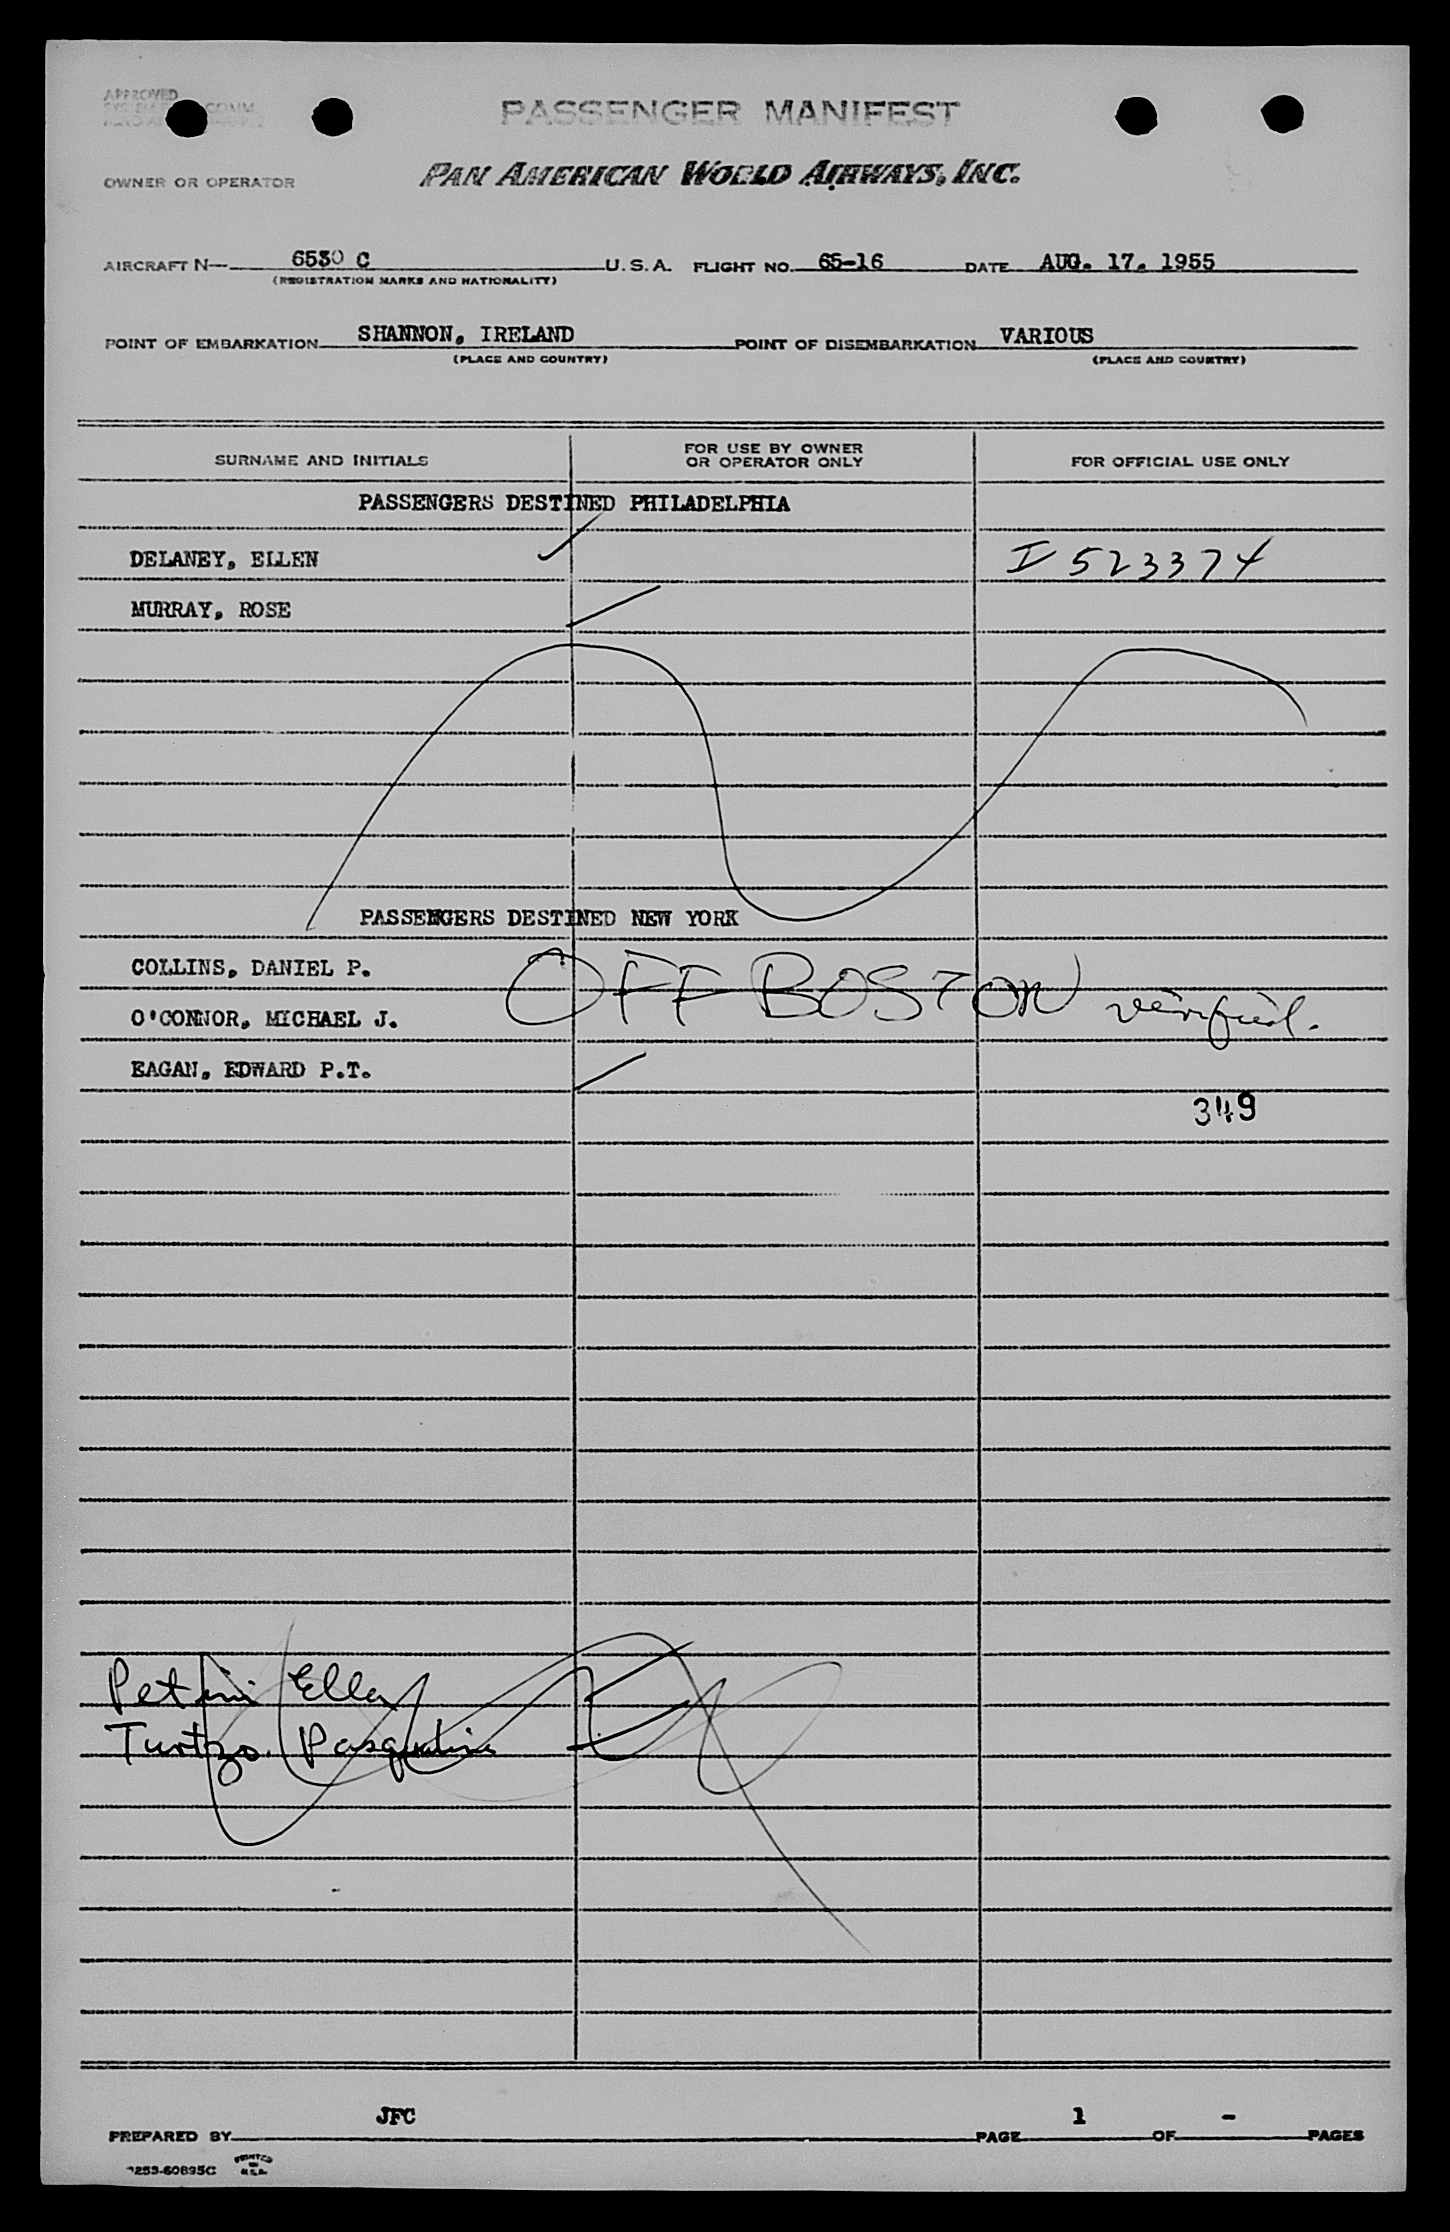 APPROVED
PASSENGER MANIFEST
OWNER OR OPERATOR PAN AMERICAN WORLD AIRWAYS, INC.
AIRCRAFT N 6530 C U.S.A. FLIGHT NO. 65-16 DATE AUG. 17. 1955
(REGISTRATION MARKS AND NATIONALITY)
POINT OF EMBARKATION SHANNON, IRELAND POINT OF DISEMBARKATION VARIOUS
(PLACE AND COUNTRY) (PLACE AND COUNTRY)
SURNAME AND INITIALS FOR USE BY OWNER OR OPERATOR ONLY FOR OFFICIAL USE ONLY
PASSENGERS DESTINED PHILADELPHIA
DELANEY, ELLEN I 523374
MURRAY, ROSE
PASSENGERS DESTINED NEW YORK
COLLINS, DANIEL P.
OFF BOSTON verified.
O'CONNOR, MICHAEL J.
EAGAN, EDWARD P.T.
349
Petrini Ella
Turtzo. Pasqualina
JFC 1 -
PREPARED BY PAGE OF PAGES
PRINTED IN U.S.A.